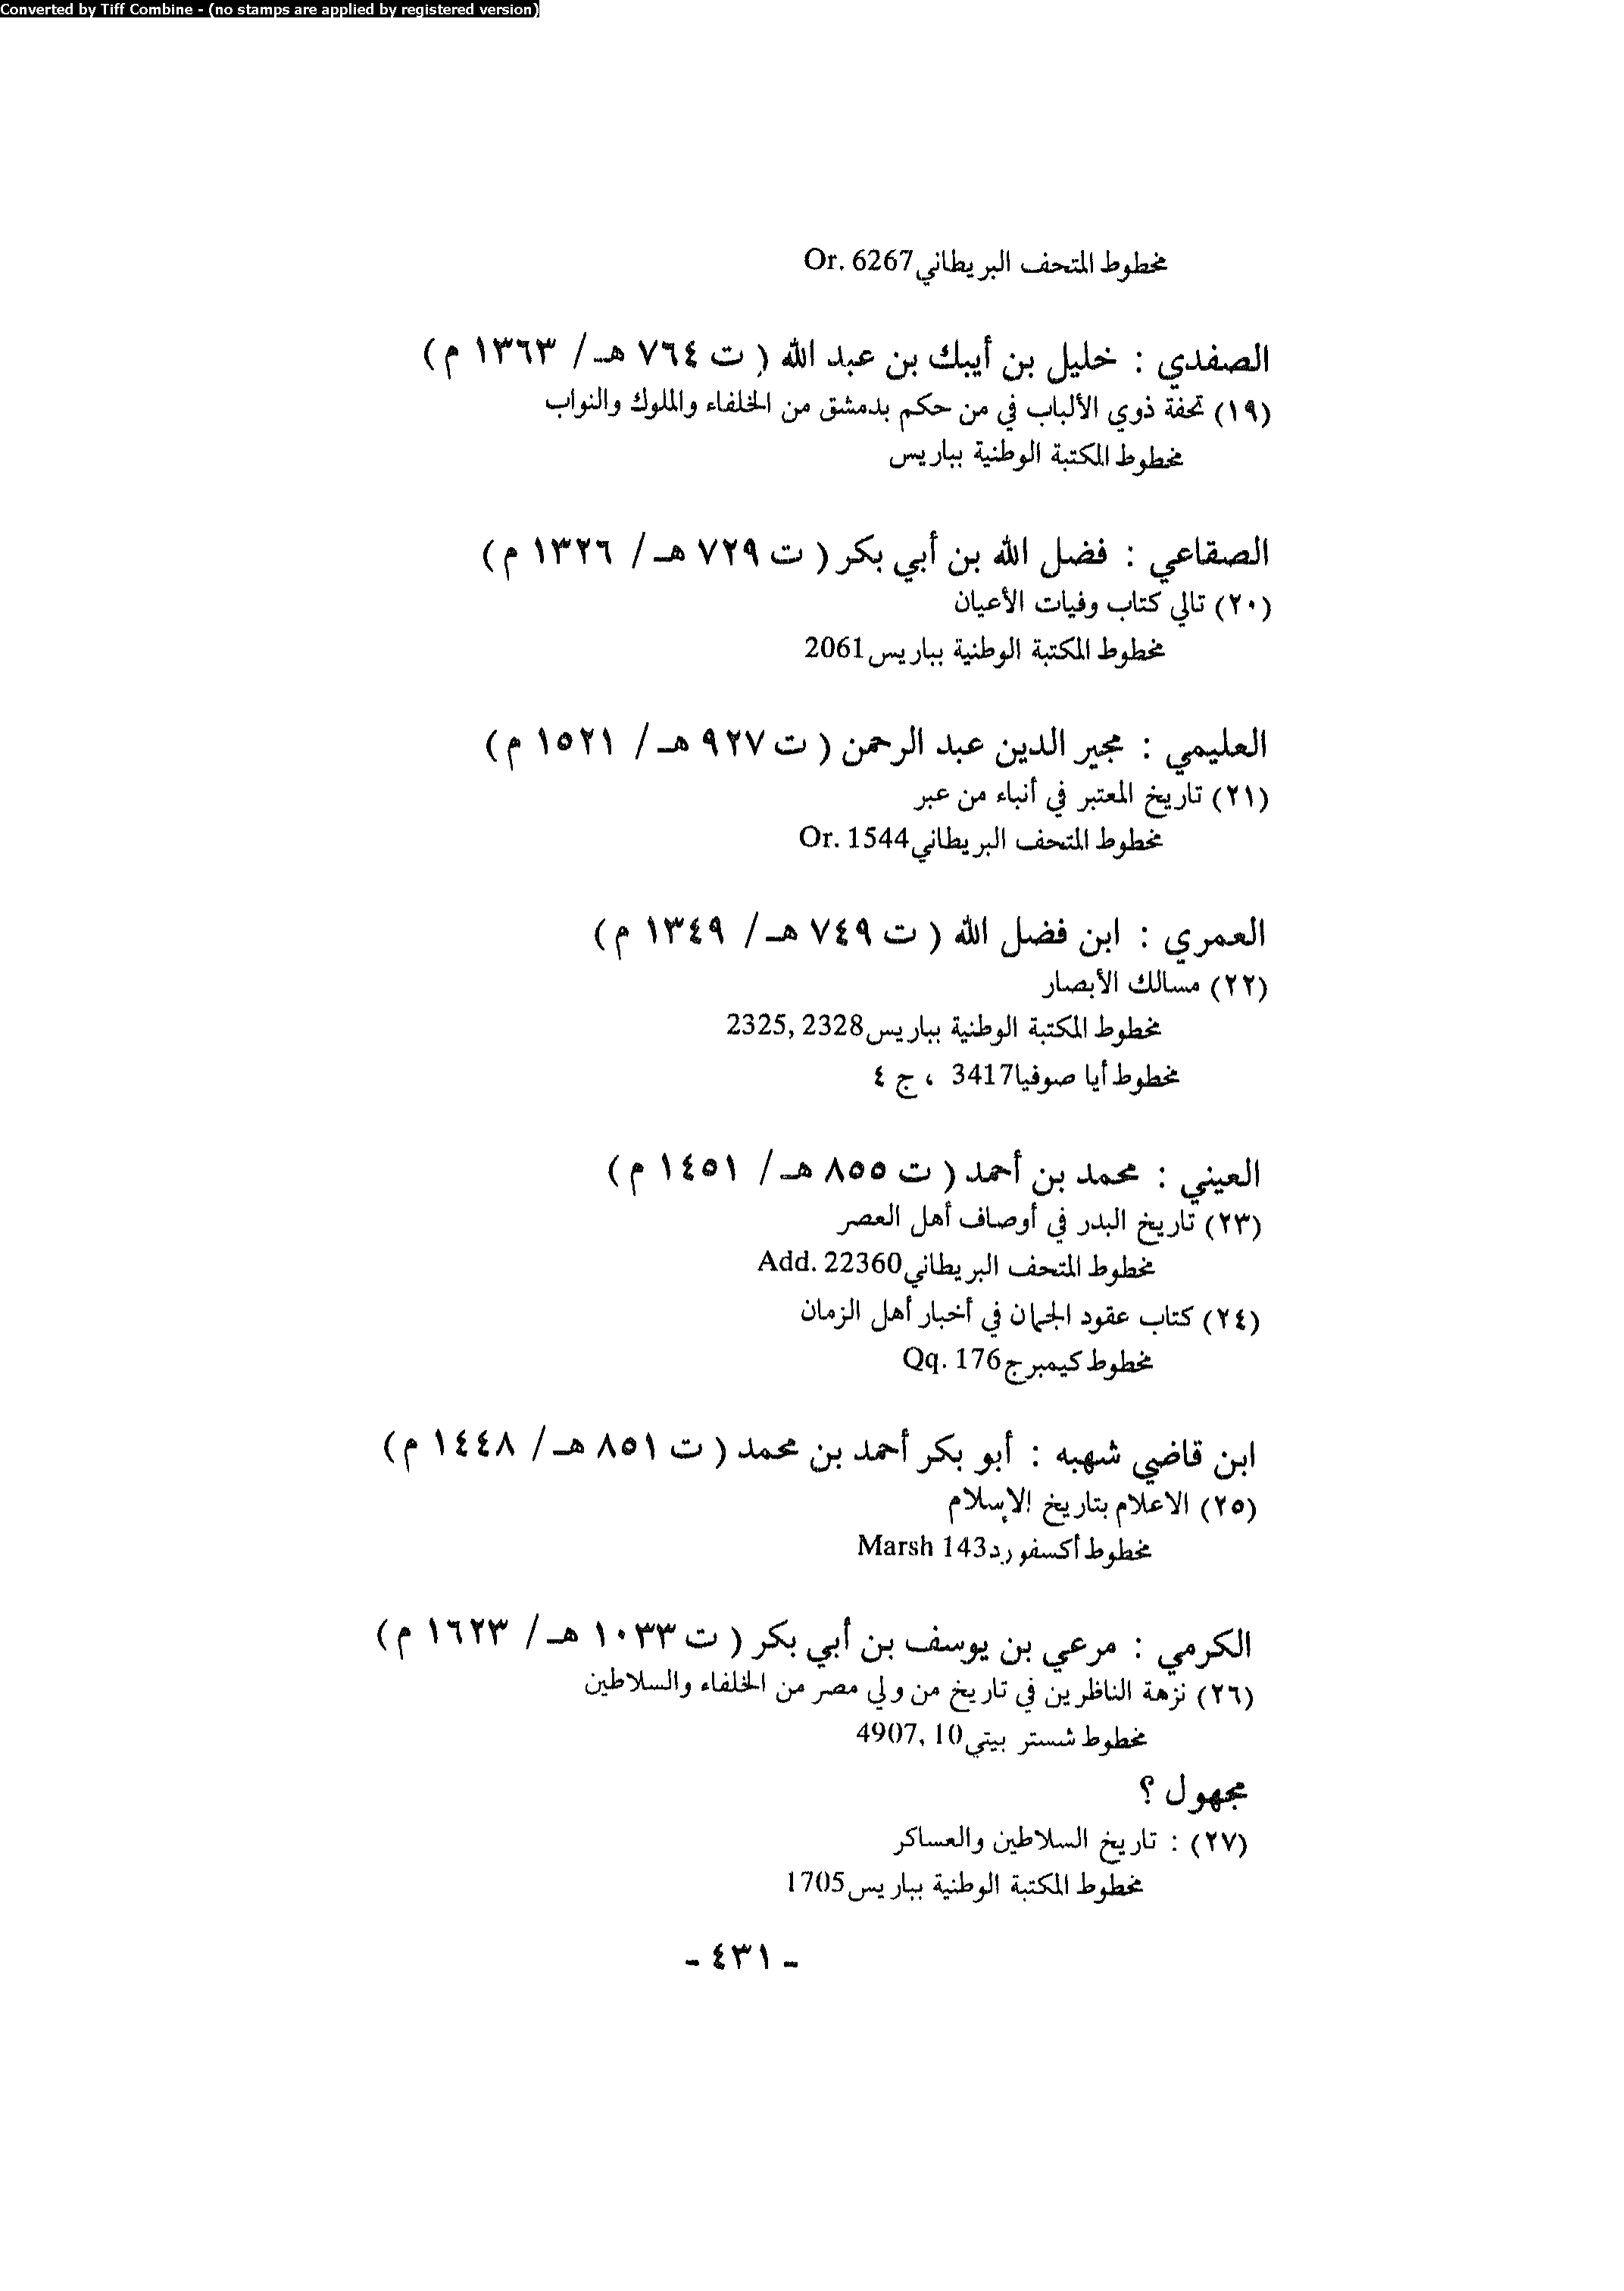 Converted by Tiff Combine - (no stamps are applied by registered version)
مخطوط المتحف البريطاني Or. 6267
الصفدي : خليل بن أيبك بن عبد الله ( ت ٧٦٤ هـ / ١٣٦٣ م )
(١٩) تحفة ذوي الألباب في من حكم بدمشق من الخلفاء والملوك والنواب
مخطوط المكتبة الوطنية بباريس
الصقاعي : فضل الله بن أبي بكر ( ت ٧٢٩ هـ / ١٣٢٦ م )
(٢٠) تالي كتاب وفيات الأعيان
مخطوط المكتبة الوطنية بباريس 2061
العليمي : مجير الدين عبد الرحمن ( ت ٩٢٧ هـ / ١٥٢١ م )
(٢١) تاريخ المعتبر في أنباء من عبر
مخطوط المتحف البريطاني Or. 1544
العمري : ابن فضل الله ( ت ٧٤٩ هـ / ١٣٤٩ م )
(٢٢) مسالك الأبصار
مخطوط المكتبة الوطنية بباريس 2325, 2328
مخطوط أيا صوفيا 3417 ، ج ٤
العيني : محمد بن أحمد ( ت ٨٥٥ هـ / ١٤٥١ م )
(٢٣) تاريخ البدر في أوصاف أهل العصر
مخطوط المتحف البريطاني Add. 22360
(٢٤) كتاب عقود الجمان في أخبار أهل الزمان
مخطوط كيمبرج Qq. 176
ابن قاضي شهبه : أبو بكر أحمد بن محمد ( ت ٨٥١ هـ / ١٤٤٨ م )
(٢٥) الاعلام بتاريخ الإسلام
مخطوط أكسفورد Marsh 143
الكرمي : مرعي بن يوسف بن أبي بكر ( ت ١٠٣٣ هـ / ١٦٢٣ م )
(٢٦) نزهة الناظرين في تاريخ من ولي مصر من الخلفاء والسلاطين
مخطوط شستر بيتي 4907, 10
مجهول ؟
(٢٧) : تاريخ السلاطين والعساكر
مخطوط المكتبة الوطنية بباريس 1705
- ٤٣١ -